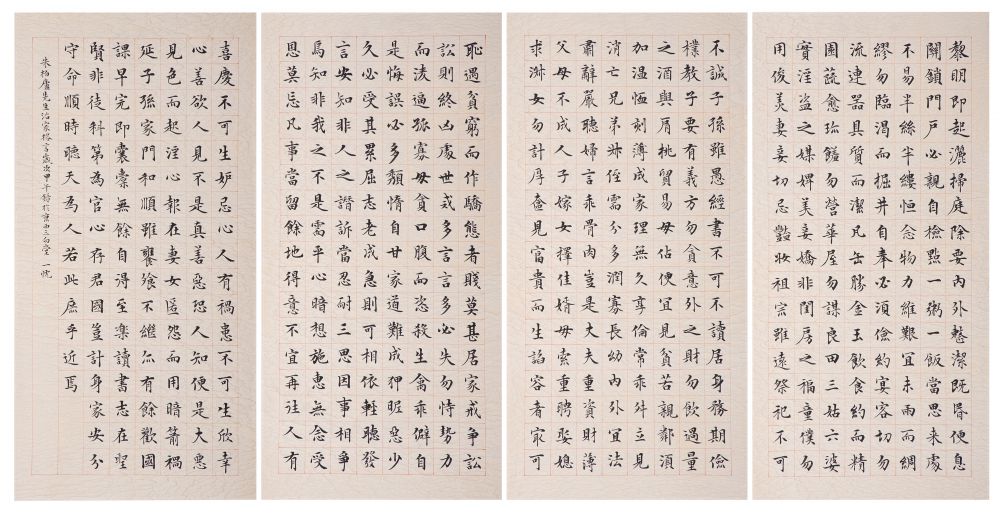 黎明即起灑掃庭除要內外整潔既昏便息
關鎖門戶必親自檢點一粥一飯當思來處
不易半絲半縷恒念物力維艱宜未雨而綢
繆勿臨渴而掘井自奉必須儉約宴客切勿
流連器具質而潔瓦缶勝金玉飲食約而精
園蔬愈珍饈勿營華屋勿謀良田三姑六婆
實淫盜之媒婢美妾嬌非閨房之福童僕勿
用俊美妻妾切忌豔妝祖宗雖遠祭祀不可
不誠子孫雖愚經書不可不讀居身務期儉
樸教子要有義方勿貪意外之財勿飲過量
之酒與肩挑貿易毋佔便宜見貧苦親鄰須
加溫恤刻薄成家理無久享倫常乖舛立見
消亡兄弟叔侄需分多潤寡長幼內外宜法
肅辭嚴聽婦言乖骨肉豈是大夫重資財薄
父母不成人子嫁女擇佳婿毋索重聘娶媳
求淑女勿計厚奩見富貴而生諂容者最可
恥遇貧窮而作驕態者賤莫甚居家戒爭訟
訟則終凶處世戒多言言多必失勿恃勢力
而凌逼孤寡毋貪口腹而恣殺生禽乖僻自
是悔誤必多頹惰自甘家道難成狎昵惡少
久必受其累屈志老成急則可相依輕聽發
言安知非人之譖訴當忍耐三思因事相爭
焉知非我之不是需平心暗想施惠無念受
恩莫忘凡事當留餘地得意不宜再往人有
喜慶不可生妒忌心人有禍患不可生欣幸
心善欲人見不是真善惡恐人知便是大惡
見色而起淫心報在妻女匿怨而用暗箭禍
延子孫家門和順雖饔飧不繼亦有餘歡國
課早完即囊橐無餘自得至樂讀書志在聖
賢非徒科第為官心存君國豈計身家安分
守命順時聽天為人若此庶乎近焉
朱柏廬先生治家格言歲次甲午錄於京西三 堂 一忱